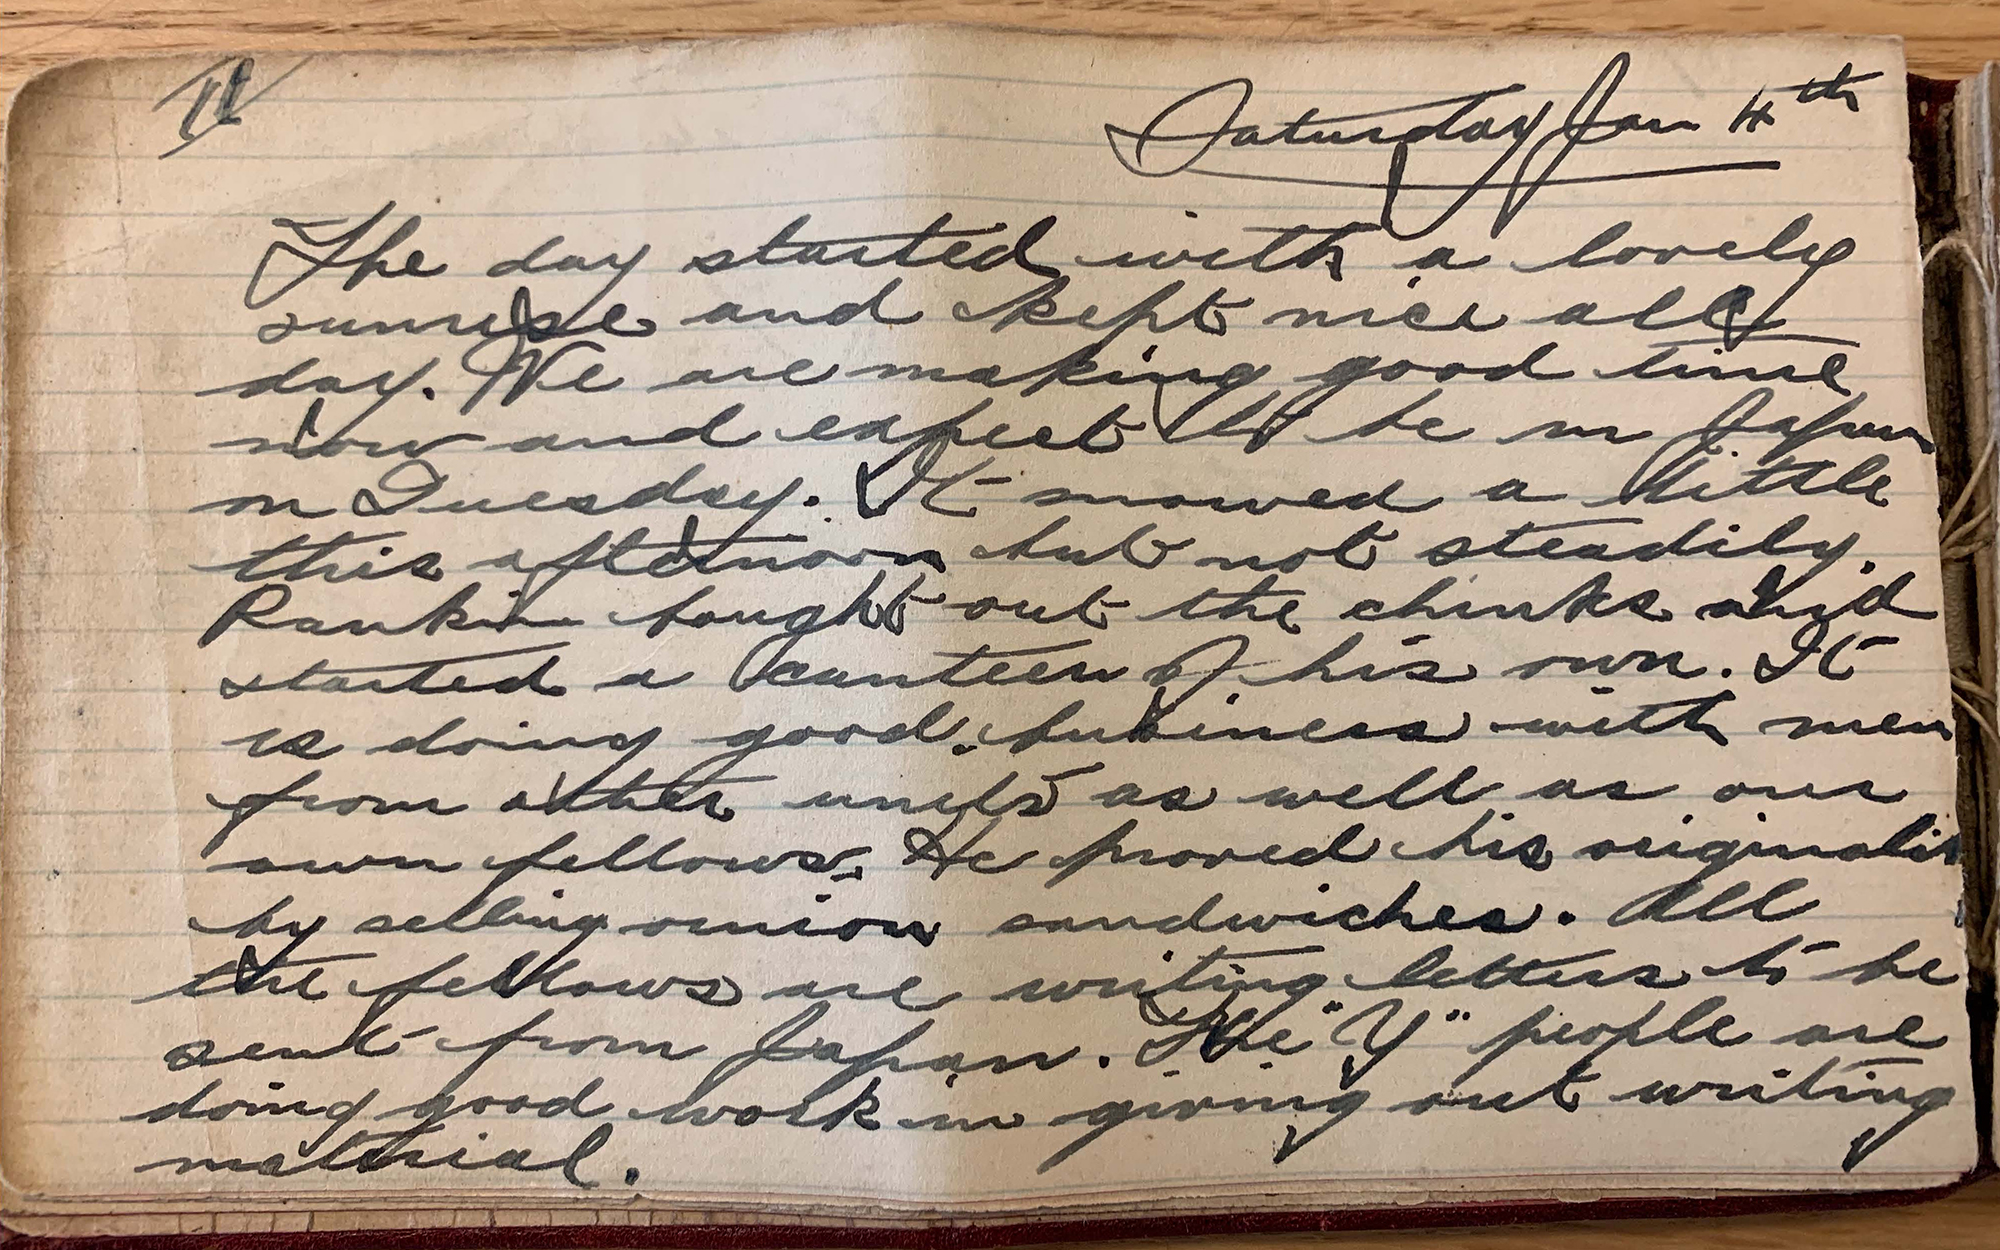 Saturday Jan 4th
The day started with a lovely
sunrise and kept nice all
day. We are making good time
now and expect to be in Japan
on Tuesday. It snowed a little
this afternoon but not steadily.
Rankin bought out the chinks and
started a canteen of his own. It
is doing good business with men
from other units as well as our
own fellows. He proved his originalit
by selling onion sandwiches. All
the fellows are writing letters to be
sent from Japan. The "Y" people are
doing good work in giving out writing
material.